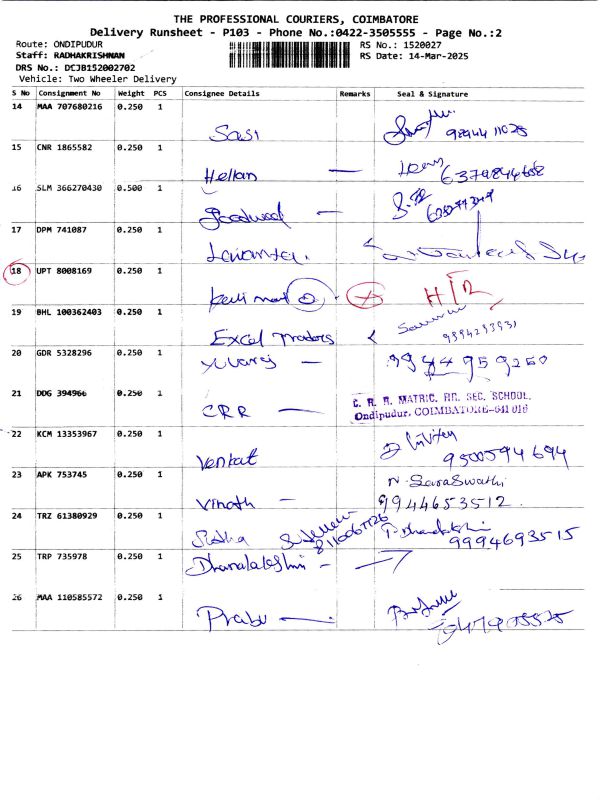 THE PROFESSIONAL COURIERS, COIMBATORE
Delivery Runsheet - P103 - Phone No.:0422-3505555 - Page No.:2
Route: ONDIPUDUR
RS No.: 1520027
Staff: RADHAKRISHNAN
RS Date: 14-Mar-2025
DRS No.: DCJB152002702
Vehicle: Two Wheeler Delivery
S No Consignment No Weight PCS Consignee Details Remarks Seal & Signature
14 MAA 707680216 0.250 1
Sasi
15 CNR 1865582 0.250 1
Hellan — 6379844658
16 SLM 366270430 0.500 1
Goodwood —
17 DPM 741087 0.250 1
18 UPT 8008169 0.250 1
19 BHL 100362403 0.250 1
Excel Traders
20 GDR 5328296 0.250 1
Yuvaraj — 9944959260
21 DDG 394966 0.250 1
CRR —
C. R. R. MATRIC. HR. SEC. SCHOOL,
Ondipudur, COIMBATORE-641 016
22 KCM 13353967 0.250 1
Venkat 9500594694
23 APK 753745 0.250 1
N. Saraswathi
Vinoth — 9944653512
24 TRZ 61380929 0.250 1
9994693515
25 TRP 735978 0.250 1
Dhanalakshmi -
26 MAA 110585572 0.250 1
Prabu —